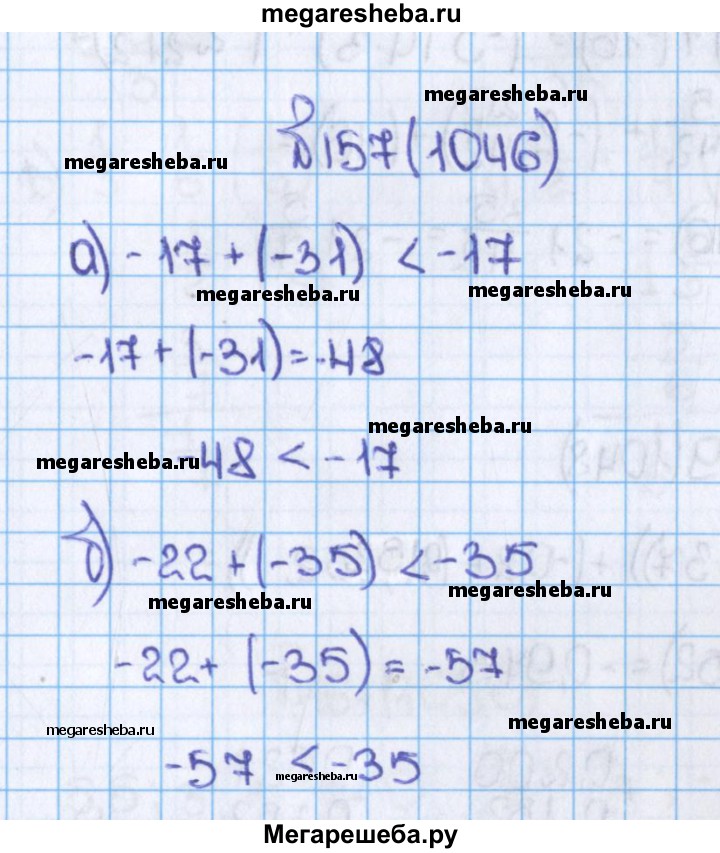 megaresheba.ru
megaresheba.ru
№157(1046)
megaresheba.ru
а) -17 + (-31) < -17
megaresheba.ru
megaresheba.ru
-17 + (-31) = -48
megaresheba.ru
-48 < -17
megaresheba.ru
б) -22 + (-35) < -35
megaresheba.ru
megaresheba.ru
-22 + (-35) = -57
megaresheba.ru
megaresheba.ru
-57 < -35
megaresheba.ru
Мегарешеба.ру